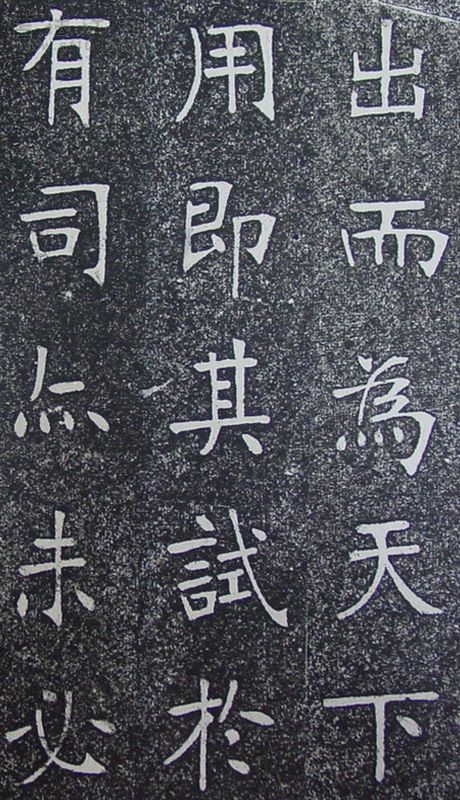 出而為天下
用即其試於
有司亦未必